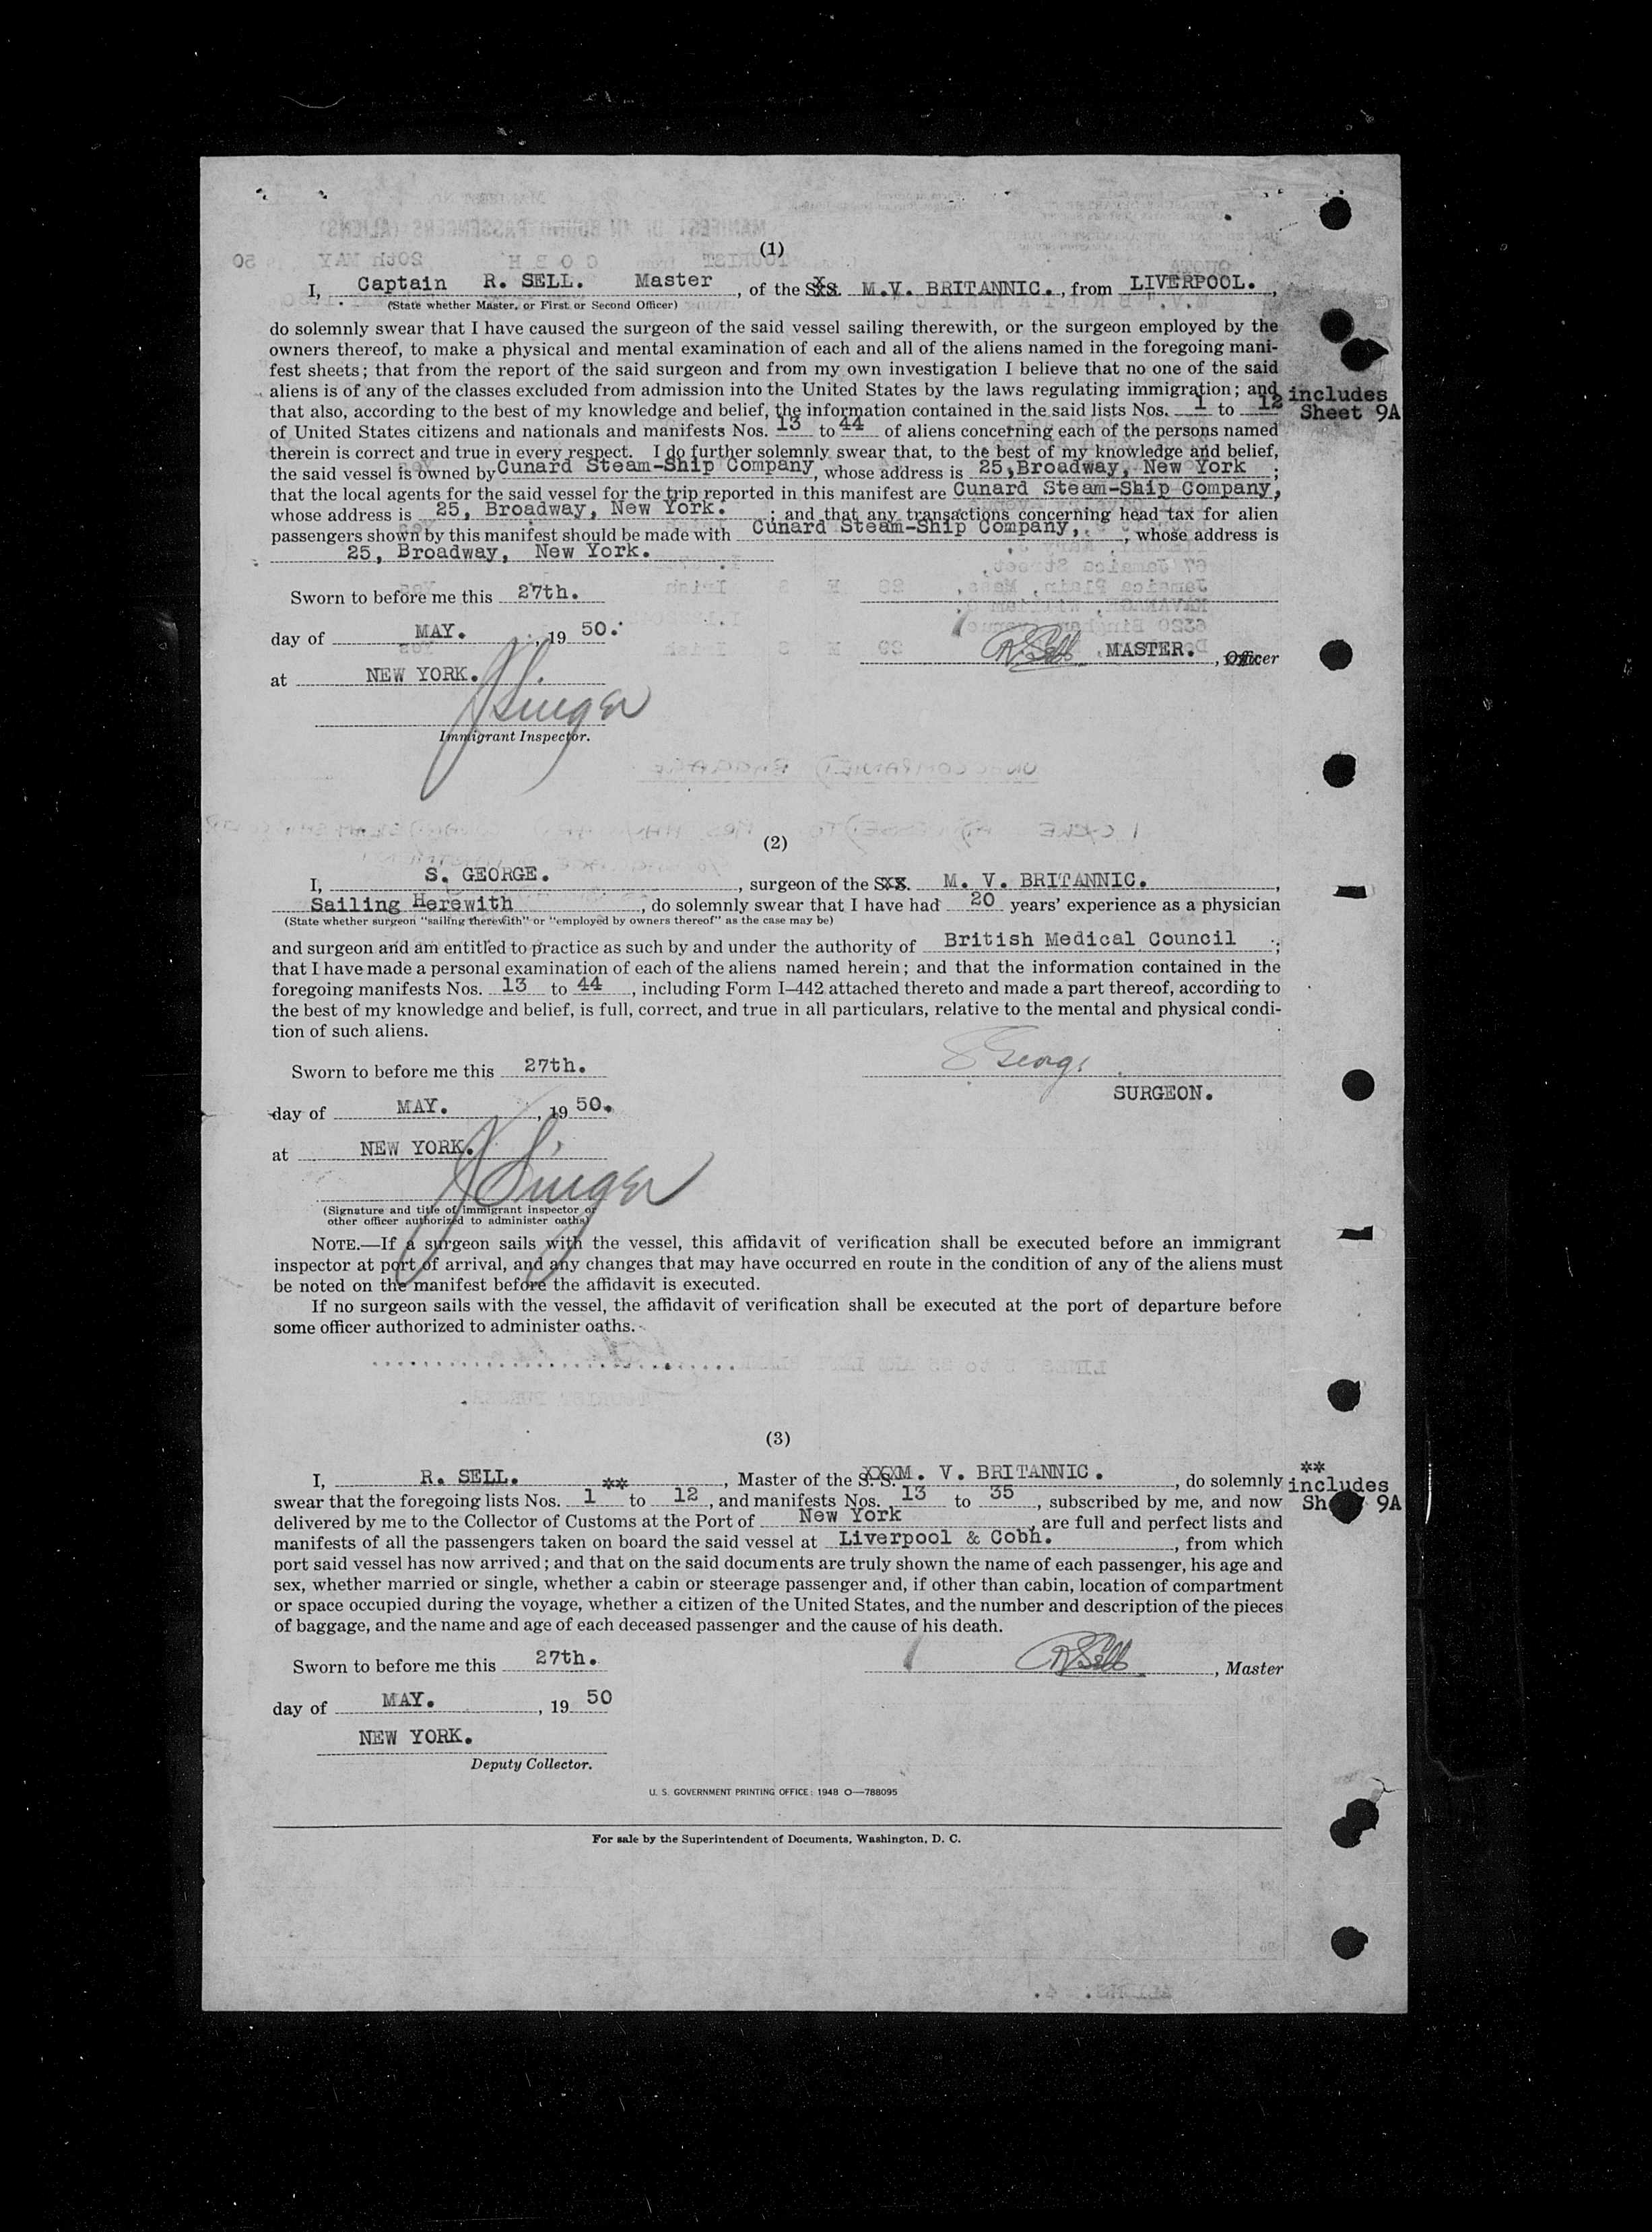 (1)
I, Captain R. SELL. Master, of the S.S. M.V. BRITANNIC., from LIVERPOOL.,
(State whether Master, or First or Second Officer)
do solemnly swear that I have caused the surgeon of the said vessel sailing therewith, or the surgeon employed by the
owners thereof, to make a physical and mental examination of each and all of the aliens named in the foregoing mani-
fest sheets; that from the report of the said surgeon and from my own investigation I believe that no one of the said
aliens is of any of the classes excluded from admission into the United States by the laws regulating immigration; and includes
that also, according to the best of my knowledge and belief, the information contained in the said lists Nos. 1 to 12 Sheet 9A
of United States citizens and nationals and manifests Nos. 13 to 44 of aliens concerning each of the persons named
therein is correct and true in every respect. I do further solemnly swear that, to the best of my knowledge and belief,
the said vessel is owned by Cunard Steam-Ship Company, whose address is 25, Broadway, New York;
that the local agents for the said vessel for the trip reported in this manifest are Cunard Steam-Ship Company,
whose address is 25, Broadway, New York. ; and that any transactions concerning head tax for alien
passengers shown by this manifest should be made with Cunard Steam-Ship Company,, whose address is
25, Broadway, New York.
Sworn to before me this 27th.
day of MAY., 19 50.
R Sell MASTER., Officer
at NEW YORK.
J Singer
Immigrant Inspector.
(2)
I, S. GEORGE., surgeon of the S.S. M. V. BRITANNIC.,
Sailing Herewith, do solemnly swear that I have had 20 years' experience as a physician
(State whether surgeon "sailing therewith" or "employed by owners thereof" as the case may be)
and surgeon and am entitled to practice as such by and under the authority of British Medical Council;
that I have made a personal examination of each of the aliens named herein; and that the information contained in the
foregoing manifests Nos. 13 to 44, including Form I-442 attached thereto and made a part thereof, according to
the best of my knowledge and belief, is full, correct, and true in all particulars, relative to the mental and physical condi-
tion of such aliens.
S George
Sworn to before me this 27th.
SURGEON.
day of MAY., 19 50.
at NEW YORK.
J Singer
(Signature and title of immigrant inspector or
other officer authorized to administer oaths)
NOTE.—If a surgeon sails with the vessel, this affidavit of verification shall be executed before an immigrant
inspector at port of arrival, and any changes that may have occurred en route in the condition of any of the aliens must
be noted on the manifest before the affidavit is executed.
If no surgeon sails with the vessel, the affidavit of verification shall be executed at the port of departure before
some officer authorized to administer oaths.
(3)
I, R. SELL. **, Master of the S.S. XXX M. V. BRITANNIC., do solemnly ** includes
swear that the foregoing lists Nos. 1 to 12, and manifests Nos. 13 to 35, subscribed by me, and now 9A
delivered by me to the Collector of Customs at the Port of New York, are full and perfect lists and
manifests of all the passengers taken on board the said vessel at Liverpool & Cobh., from which
port said vessel has now arrived; and that on the said documents are truly shown the name of each passenger, his age and
sex, whether married or single, whether a cabin or steerage passenger and, if other than cabin, location of compartment
or space occupied during the voyage, whether a citizen of the United States, and the number and description of the pieces
of baggage, and the name and age of each deceased passenger and the cause of his death.
Sworn to before me this 27th.
R Sell, Master
day of MAY., 19 50
NEW YORK.
Deputy Collector.
U. S. GOVERNMENT PRINTING OFFICE: 1948 O—788095
For sale by the Superintendent of Documents, Washington, D. C.